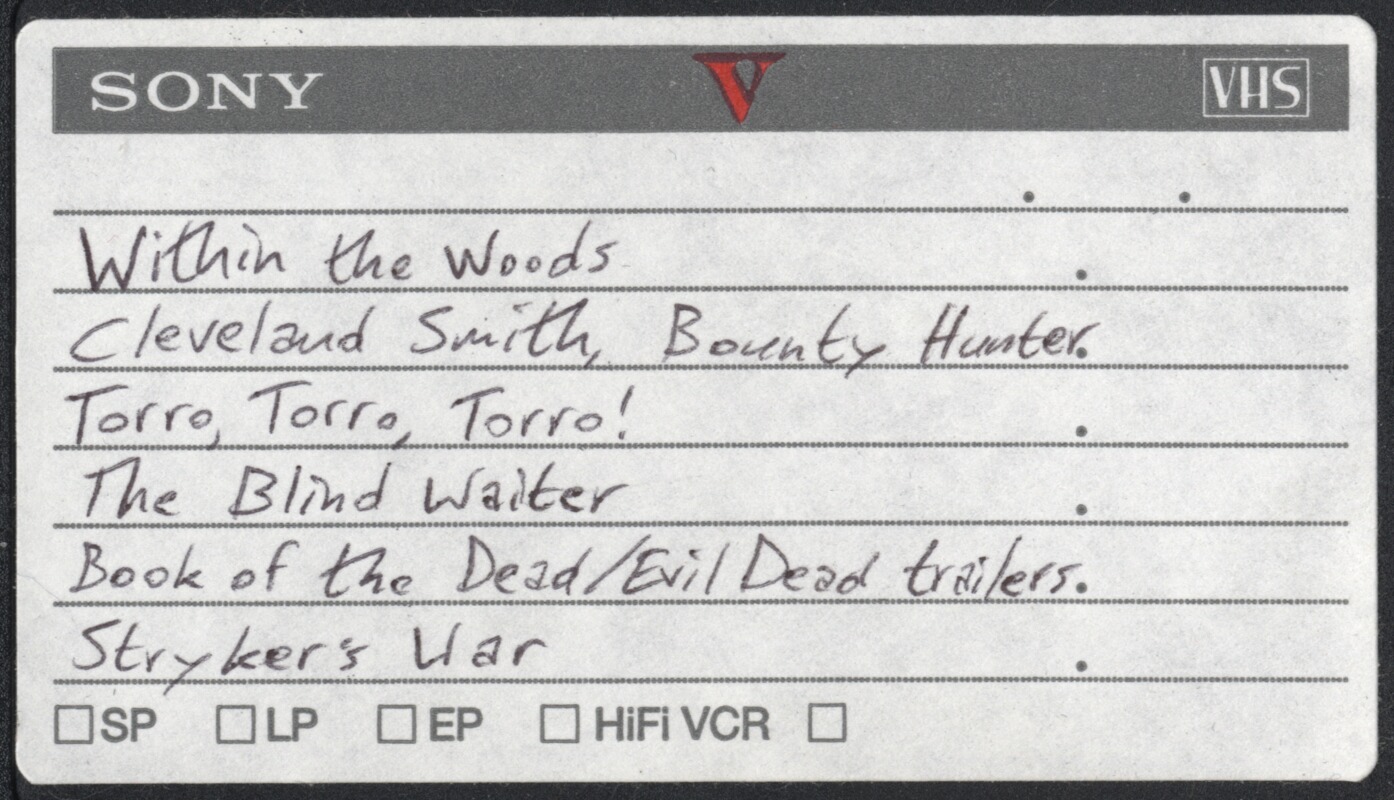 SONY V VHS
Within the Woods
Cleveland Smith, Bounty Hunter.
Torro, Torro, Torro!
The Blind Waiter
Book of the Dead/Evil Dead trailers.
Stryker's War
SP LP EP HiFi VCR